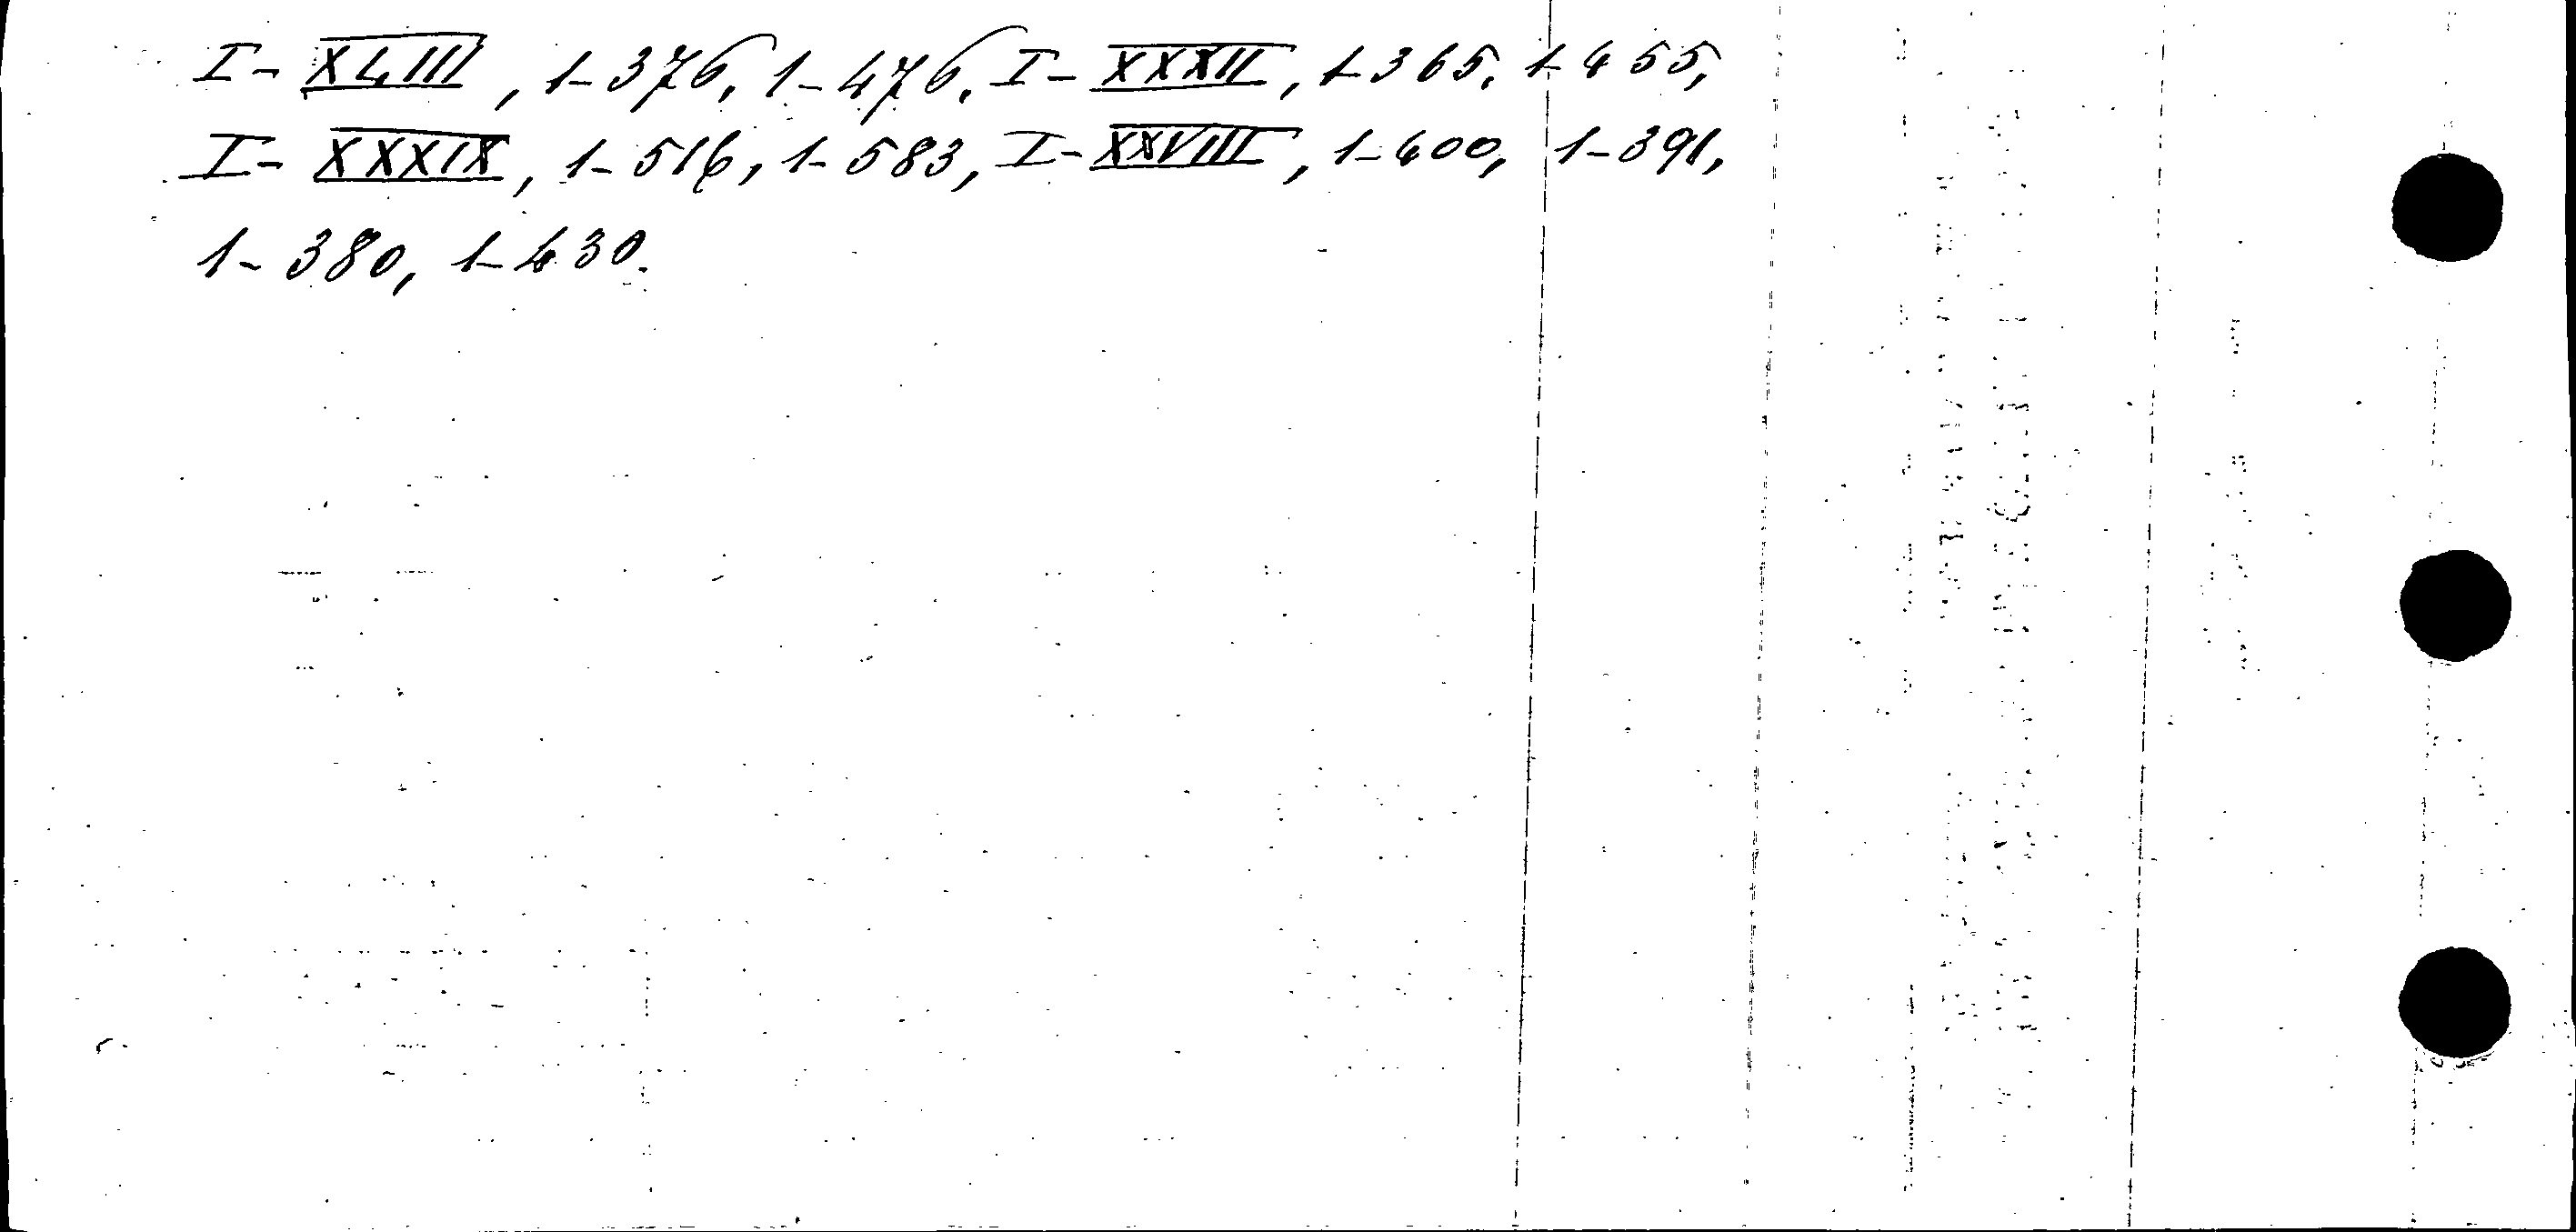 I-XLIII, 1-376, 1-476, I-XXXII, 1-365, 1-455,
I-XXXIX, 1-516, 1-583, I-XXVIII, 1-400, 1-391,
1-380, 1-430.